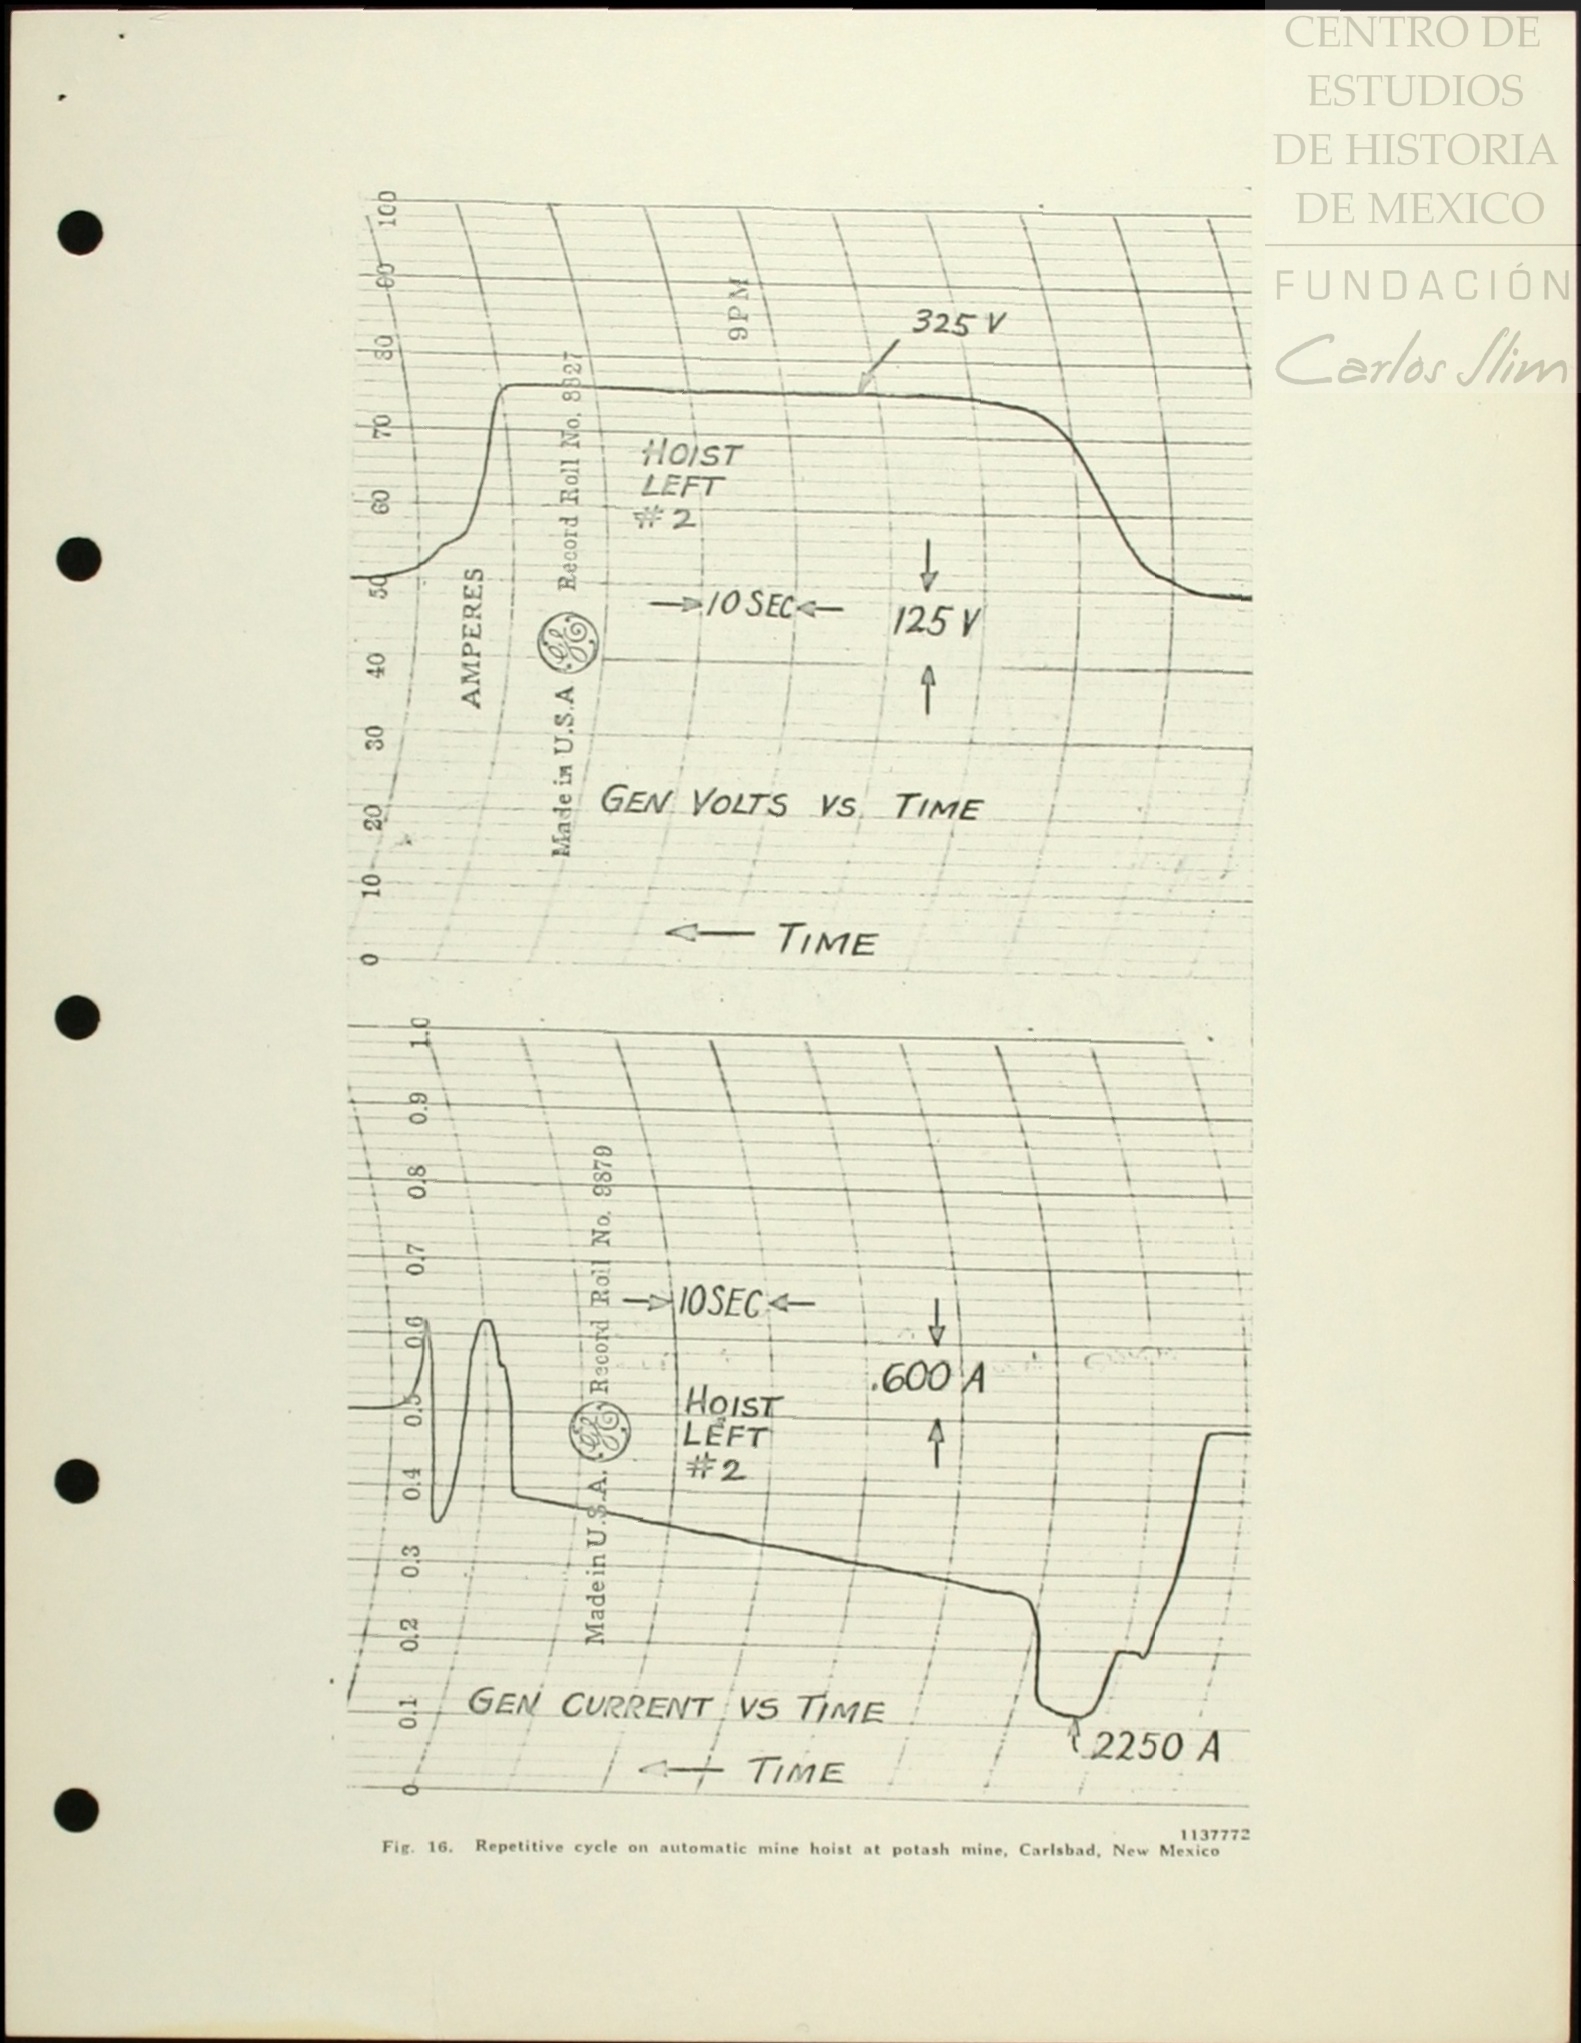 CENTRO DE
ESTUDIOS
DE HISTORIA
DE MEXICO
FUNDACIÓN
Carlos Slim
100
90
80
70
60
50
40
30
20
10
0
AMPERES
Made in U.S.A Record Roll No. 8827
9PM
325 V
HOIST
LEFT
#2
10 SEC
125 V
GEN VOLTS VS. TIME
TIME
1.0
0.9
0.8
0.7
0.6
0.5
0.4
0.3
0.2
0.1
0
Made in U.S.A. Record Roll No. 9879
10 SEC
.600 A
HOIST
LEFT
#2
GEN CURRENT VS TIME
2250 A
TIME
1137772
Fig. 16. Repetitive cycle on automatic mine hoist at potash mine, Carlsbad, New Mexico